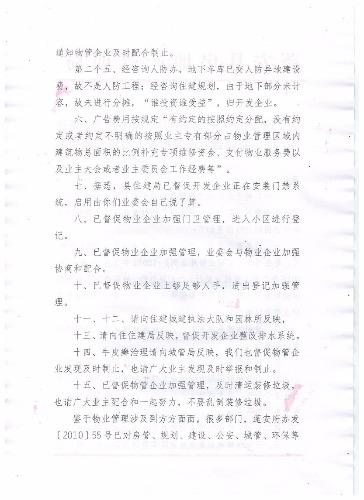 通知物管企业及时配合制止。
第二个五、经咨询人防办，地下车库已交人防异地建设
费，故不是人防工程；经咨询住建规划，由于地下部分未计
容，故未进行分摊，“谁投资谁受益”，归开发企业。
六、广告费用按规定“有约定的按照约定分配，没有约
定或者约定不明确的按照业主专有部分占物业管理区域内
建筑物总面积的比例补充专项维修资金、支付物业服务费以
及业主大会或者业主委员会工作经费等”。
七、据悉，县住建局已督促开发企业正在安装门禁系
统，启用由你们业委会自己说了算。
八、已督促物业企业加强门卫管理，进入小区进行登
记。
九、已督促物业企业加强管理，业委会与物业企业加强
协商和配合。
十、已督促物业企业上够足够人手，进出登记加强管
理。
十一、十二、请向住建城建执法大队和园林所反映。
十三、请向住住建局反映，督促开发企业整改排水系统。
十四、牛皮癣治理请向城管局反映，我们也督促物管企
业发现及时制止，也请广大业主发现及时举报和制止。
十五、已督促物管企业加强管理，及时清运装修垃圾，
也请广大业主配合和一起努力，不要乱倒装修垃圾。
鉴于物业管理涉及到方方面面，很多部门，遂安所办发
〔2010〕55 号已对房管、规划、建设、公安、城管、环保等